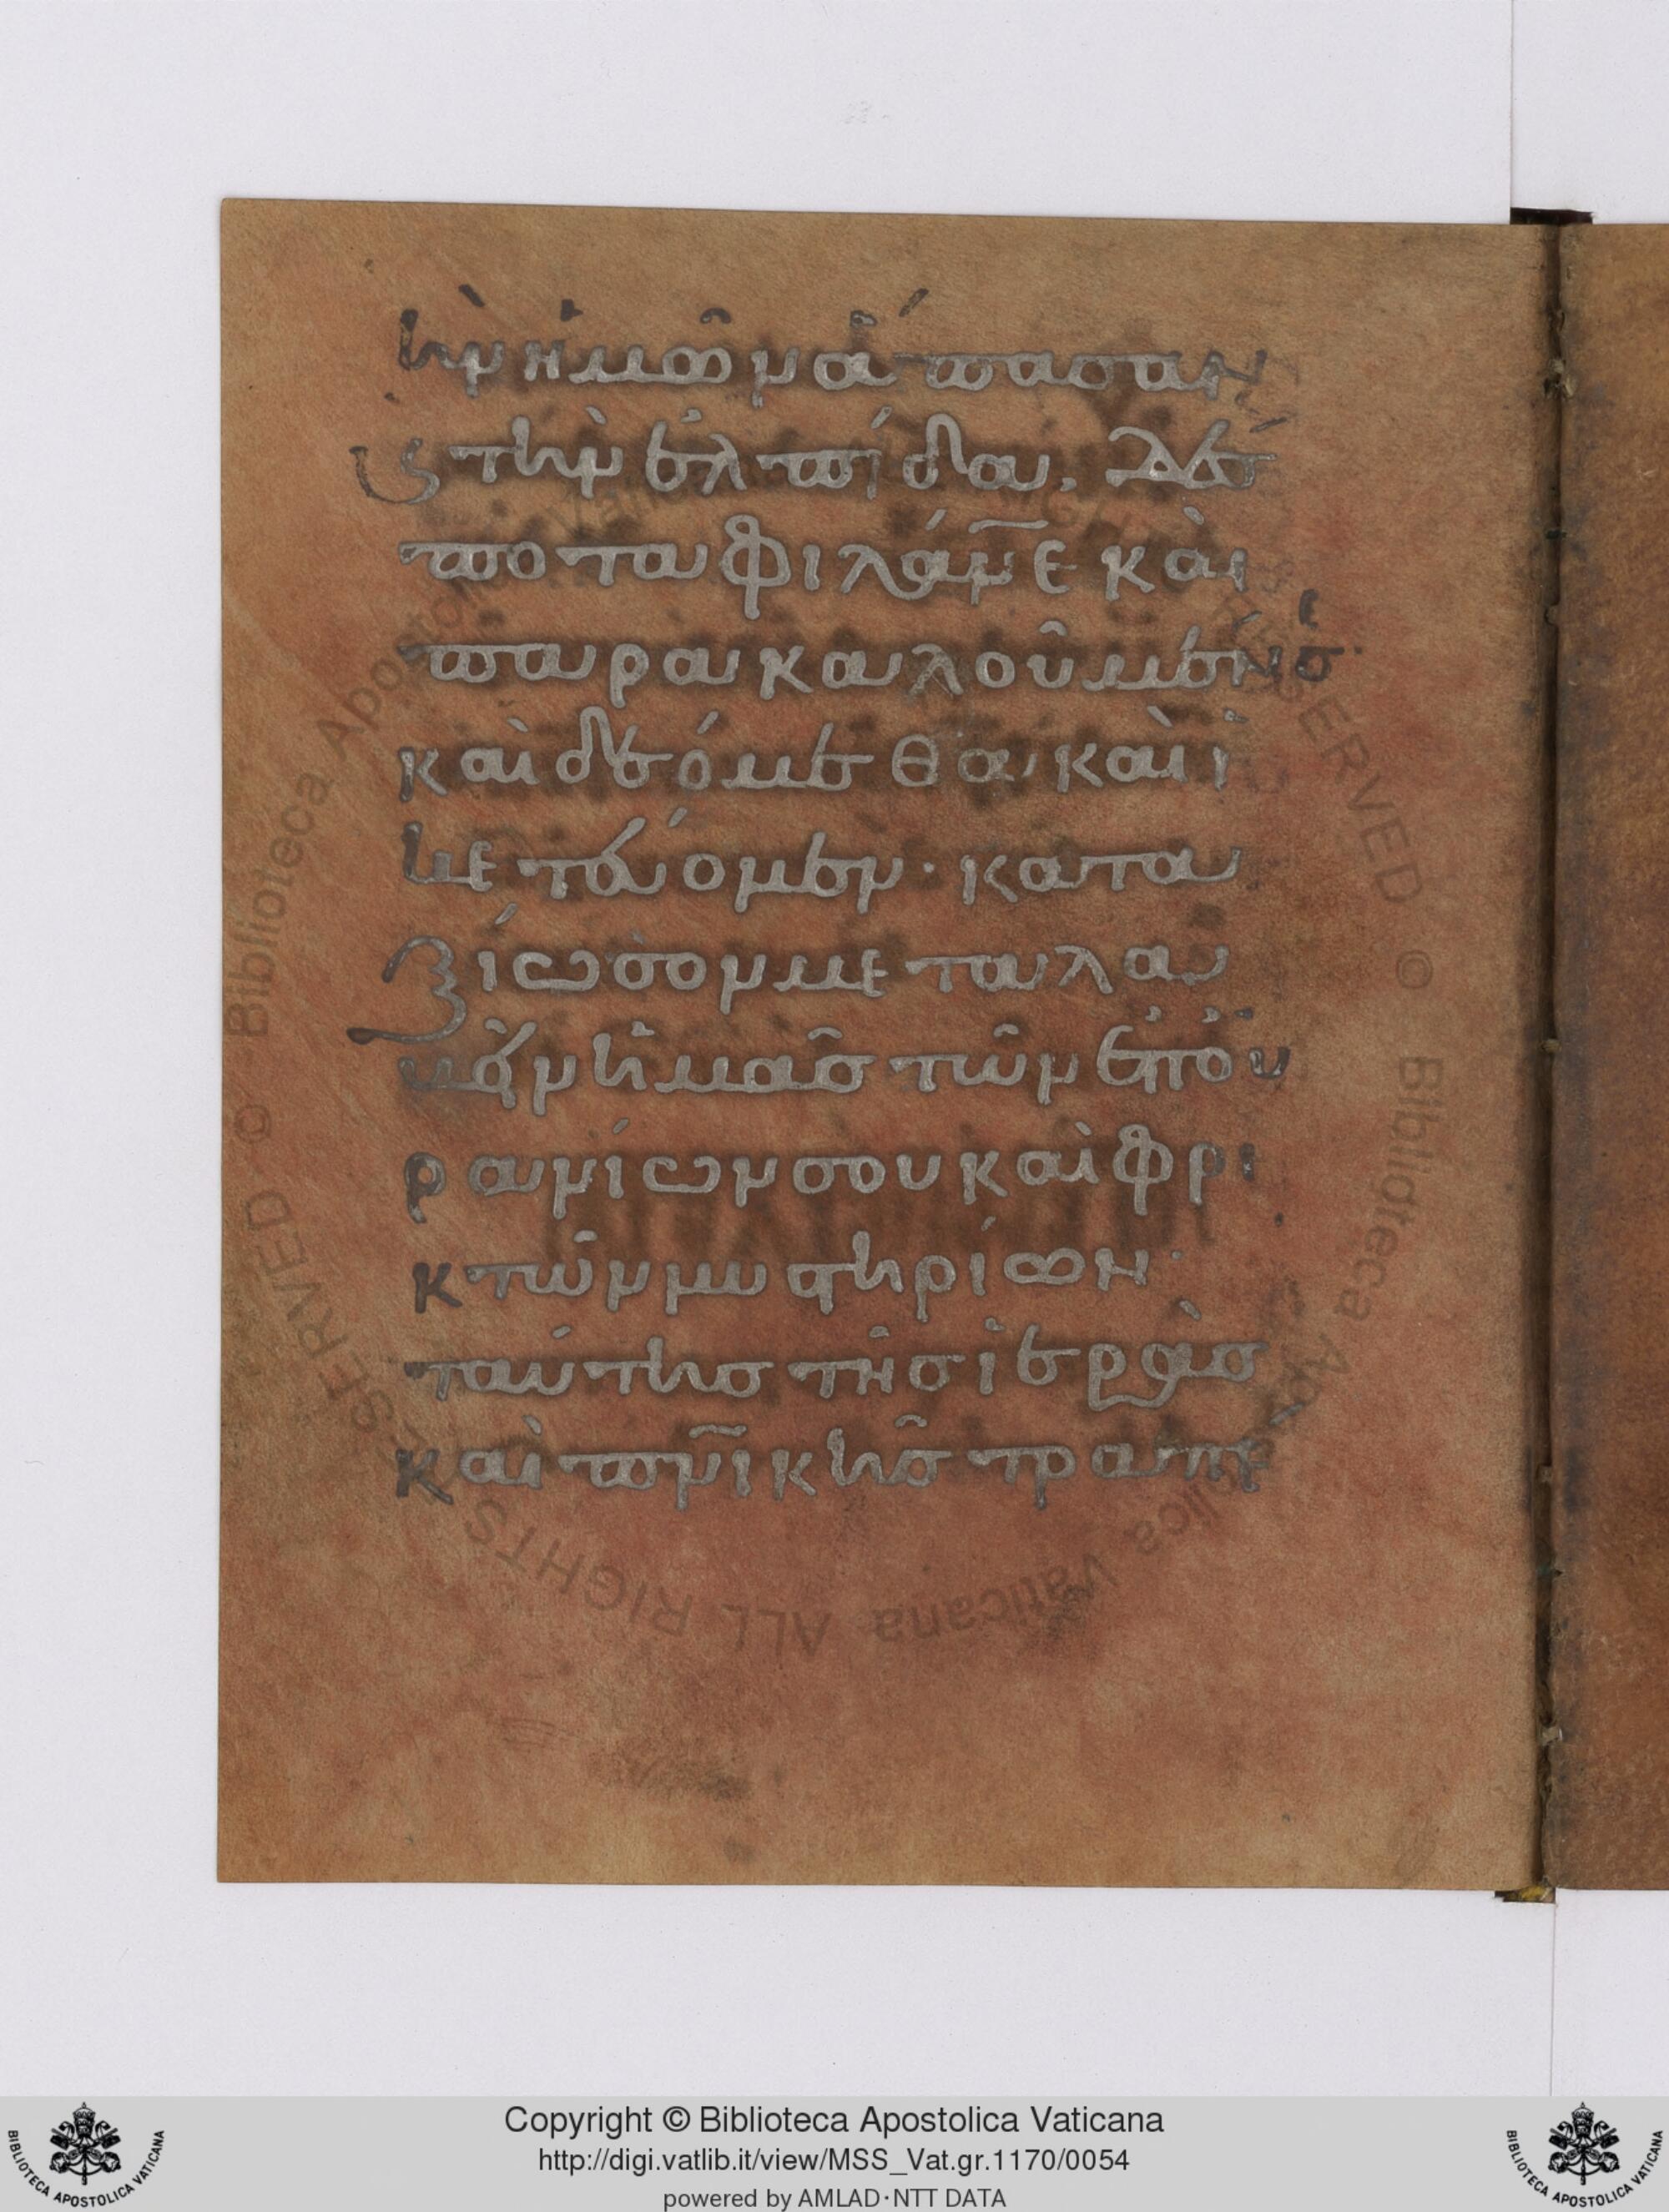 ὴν ἡμῶν ἅπασαν
ϛ τὴν ἐλπίδα, Δέ
ποτα φιλάν̅ε καὶ
παρακαλοῦμέν σε
καὶ δεόμεθα καὶ ἱ
κετεύομεν· κατα
ξίωσον μεταλα
βεῖν ἡμᾶς τῶν ἐπου
ρανίων σου καὶ φρι
κτῶν μυστηρίων·
ταύτης τῆς ἱερᾶς
καὶ πν̅ικῆς τραπε
Copyright © Biblioteca Apostolica Vaticana
http://digi.vatlib.it/view/MSS_Vat.gr.1170/0054
powered by AMLAD·NTT DATA
BIBLIOTECA APOSTOLICA VATICANA
BIBLIOTECA APOSTOLICA VATICANA
© Biblioteca Apostolica Vaticana ALL RIGHTS RESERVED